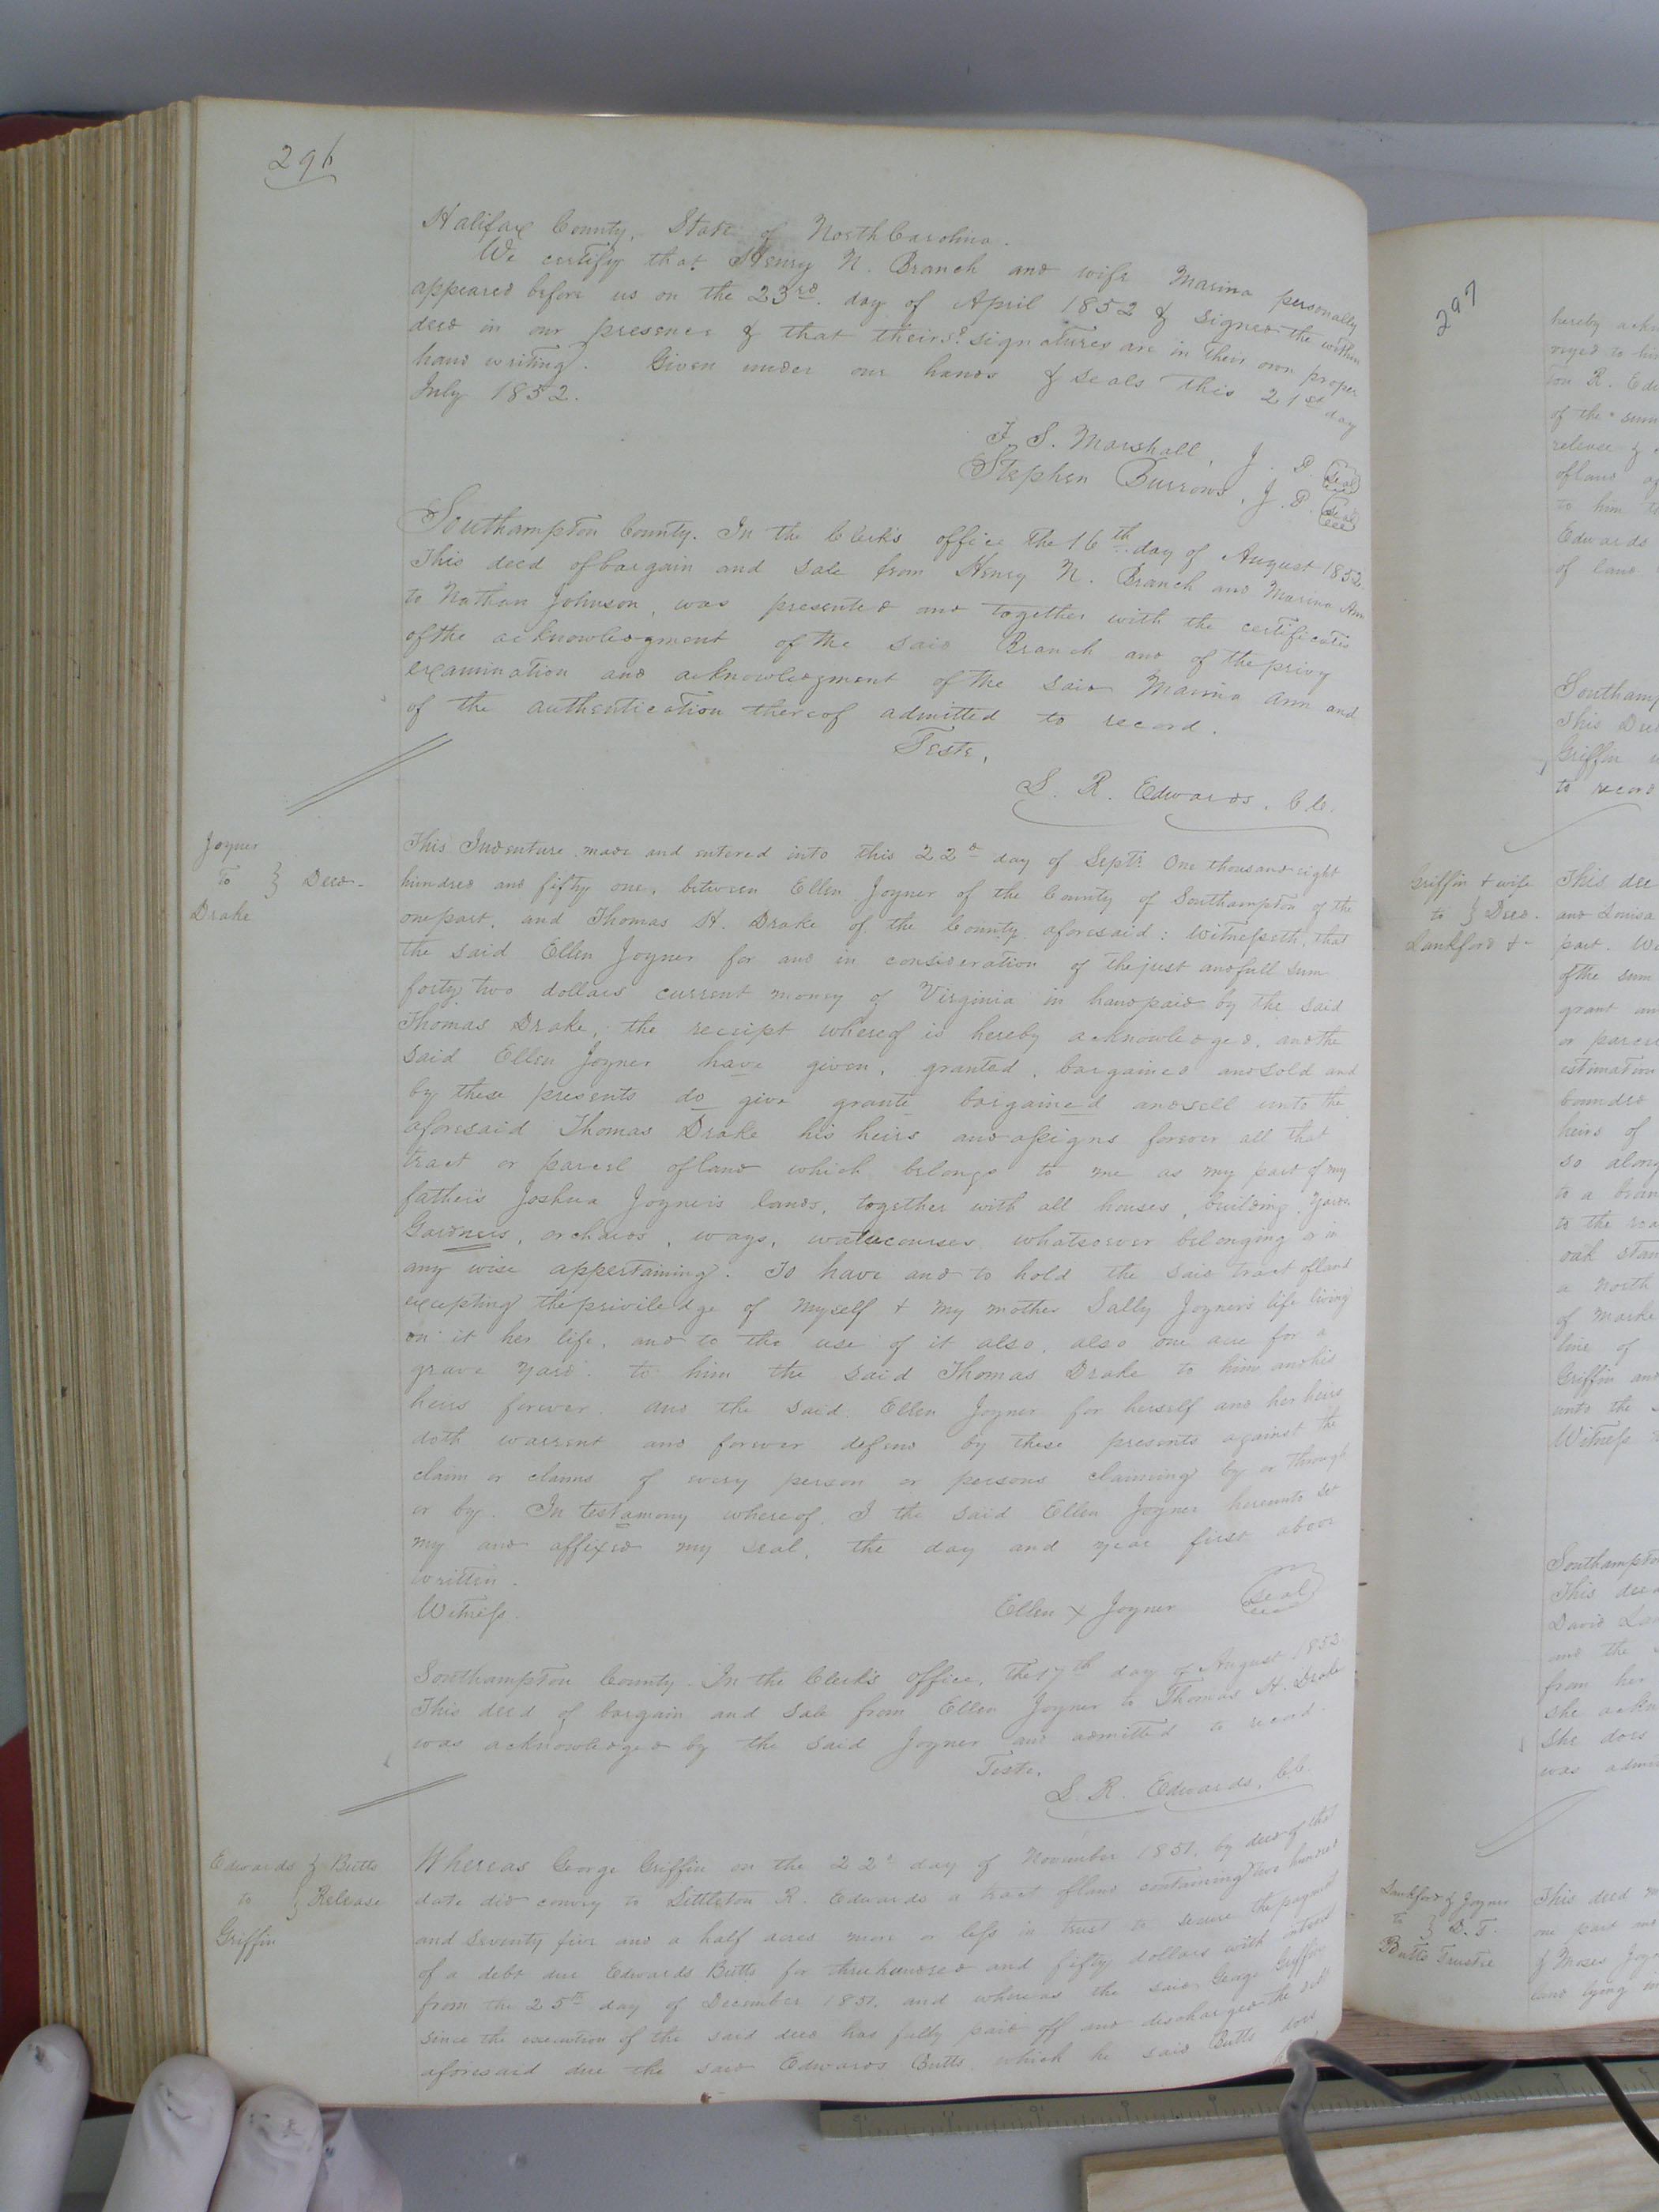 296
Halifax County, State of North Carolina.
We certify that Henry N. Branch and wife Marina personally
appeared before us on the 23rd. day of April 1852 & signed the within
deed in our presence & that theirs? signatures are in their own proper
hand writing. Given under our hands & seals this 21st day
July 1852.
J. S. Marshall, J. P. Seal
Stephen Burrows, J. P. Seal
Southampton County. In the Clerk's office the 16th day of August 1852.
This deed of bargain and sale from Henry N. Branch and Marina Ann
to Nathan Johnson, was presented and together with the certificates
of the acknowledgment of the said Branch and of the privy
examination and acknowledgment of the said Marina Ann and
of the authentication thereof admitted to record.
Teste,
L. R. Edwards, C.C.
Joyner
to } Deed.
Drake
This Indenture made and entered into this 22d day of Septr. One thousand eight
hundred and fifty one, between Ellen Joyner of the County of Southampton of the
one part, and Thomas H. Drake of the County aforesaid: Witnesseth, that
the said Ellen Joyner for and in consideration of the just and full sum
forty two dollars current money of Virginia in hand paid by the said
Thomas Drake, the receipt whereof is hereby acknowledged, and the
said Ellen Joyner have given, granted, bargained and sold and
by these presents do give grante bargained and sell unto the
aforesaid Thomas Drake his heirs and assigns forever all that
tract or parcel of land which belongs to me as my part of my
father's Joshua Joyner's lands, together with all houses, building, yards
Gardners, orchards, ways, watercourses whatsoever belonging or in
any wise appertaining. To have and to hold the said tract of land
excepting the priviledge of myself & my mother Sally Joyner's life living
on it her life, and to the use of it also, also one acre for a
grave yard. to him the said Thomas Drake to him and his
heirs forever. and the said Ellen Joyner for herself and her heirs
doth warrent and forever defend by these presents against the
claim or claims of every person or persons claiming by or through
or by. In testamony whereof, I the said Ellen Joyner hereunto set
my and affixed my seal, the day and year first above
written.
Witness. Ellen X Joyner Seal
Southampton County. In the Clerk's office, the 17th day of August 1852.
This deed of bargain and sale from Ellen Joyner to Thomas H. Drake
was acknowledged by the said Joyner and admitted to record.
Teste,
L. R. Edwards, C.C.
Edwards & Butts
to } Release
Griffin
Whereas George Griffin on the 22d day of November 1851, by deed of that
date did convey to Littleton R. Edwards a tract of land containing two hundred
and seventy five and a half acres more or less in trust to secure the payment
of a debt due Edwards Butts for three hundred and fifty dollars with interest
from the 25th day of December 1851. and whereas the said George Griffin
since the execution of the said deed has fully paid off and discharged the debt
aforesaid due the said Edwards Butts, which he said Butts does
297
hereby
to him
on R. Edw
of the sum
release &
of land
to him
Edwards
of land
Southamp
This Dee
Griffin
to record
Griffin & wife
to } Deed.
Lankford &c
This dee
and Louisa
part. W
of the sum
grant an
or parcel
estimation
bounded
heirs of
so along
to a bran
to the roa
oak stan
a north
of marke
line of
Griffin and
unto the
Witness
Southampto
This deed
David La
and the
from her
she ackn
She does
was admi
Lankford & Joyner
to } D. T.
Butts Trustee
This deed m
one part and
& Moses Joyn
land lying in